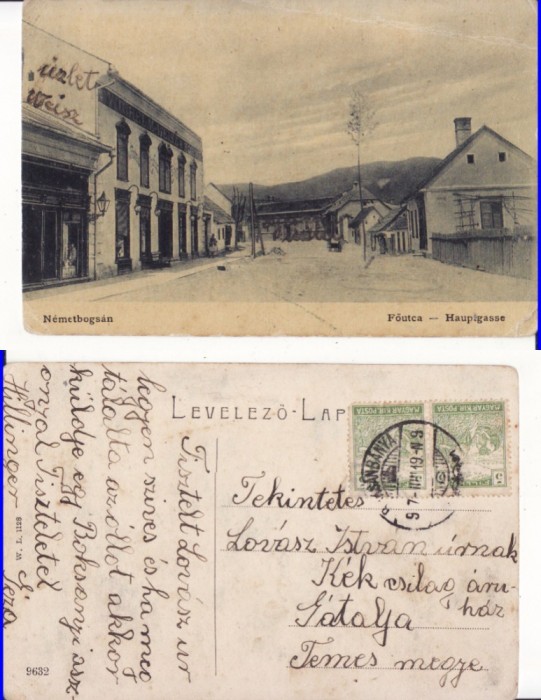 üzlet
Weisz
Németbogsán
Főutca — Hauptgasse
LEVELEZŐ-LAP
MAGYAR KIR. POSTA
MAGYAR KIR. POSTA
Tisztelt Lovász ur
legyen szives és ha meg
találta az óllot akkor
küldje egy Boksanyi asz-
onyal Tisztelettel
Hillinger
Géza
Tekintetes
Lovász István úrnak
Kék csilag áru-
ház
Gátalja
Temes megye
W. L. 1158
9632